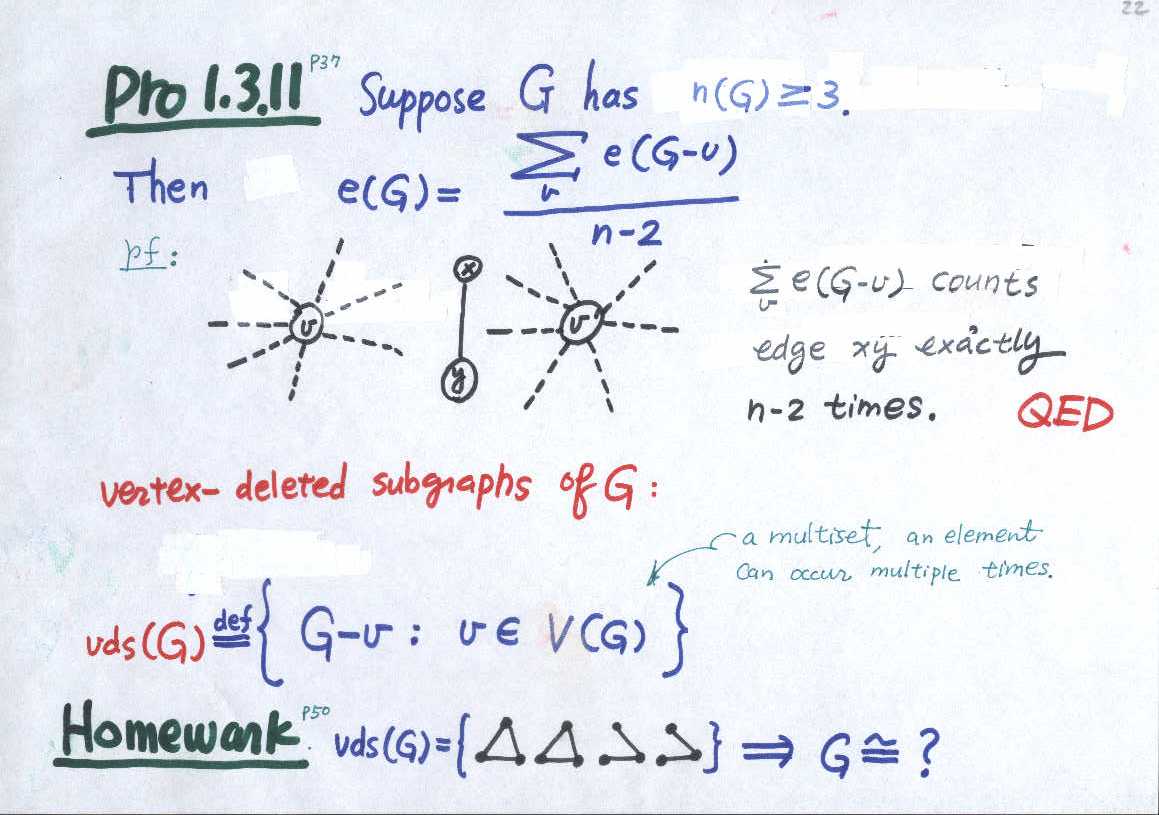 22
Pro 1.3.11 P37 Suppose G has n(G) ≥ 3.
Then e(G) = ∑_v e(G-v) / n-2
pf:
v x y v
∑_v e(G-v) counts
edge xy exactly
n-2 times. QED
vertex-deleted subgraphs of G:
a multiset, an element
can occur multiple times.
vds(G) ≝ { G-v : v ∈ V(G) }
Homework P50 vds(G) = { } ⟹ G ≅ ?